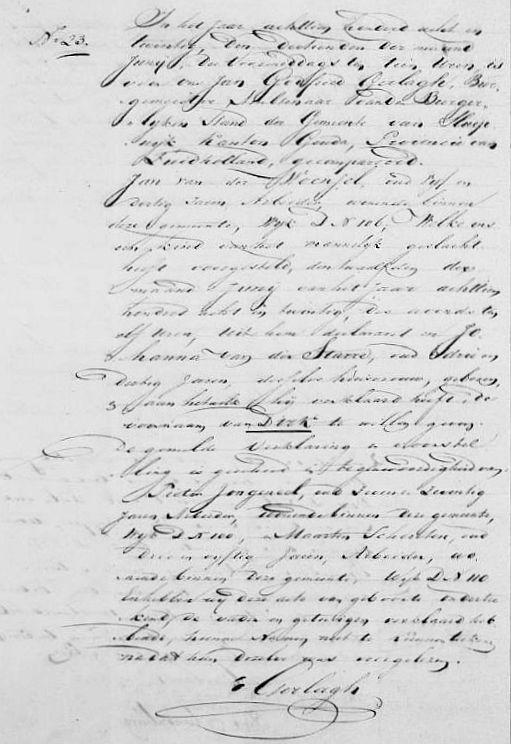 No 23.
In het jaar achttien honderd acht en
twintig, den dertienden der maand
Junij, des voormiddags ten tien uren, is
voor ons Jan Gerlagh, Bur-
gemeester Ambtenaar van de Burger-
lijken Stand der Gemeente van
wijk Kanton Gouda, Provincie van
Zuidholland, gecompareerd.
Jan van der Wenssel, oud vijf en
dertig Jaren, Arbeider, wonende binnen
deze gemeente, Wijk D N 106, Welke ons
een kind van het mannelijk geslacht
heeft voorgesteld, den twaalfden der
maand Junij van het jaar achttien
honderd acht en twintig, des avonds ten
elf uren, uit hem declarant en Jo-
hanna van der Starre, oud drie en
dertig Jaren, deszelfs huisvrouw, geboren,
aan hetwelk hij verklaard heeft de
voornaam van Dirk te willen geven.
De gemelde verklaring en voorstel-
ling is geschied in tegenwoordigheid van
Pieter Jongeneel, oud Zeven en Zeventig
Jaren, Arbeider, wonende binnen deze gemeente,
Wijk D N 100, Maarten Schouten, oud
drie en vijftig Jaren, Arbeider, wo-
nende binnen deze gemeente, Wijk D N 110
En hebben wij deze acte van geboorte
de vader en getuigen verklaard heb-
bende, hunne Namen niet te kunnen teekenen
nadat hun dezelve was voorgelezen.
Gerlagh